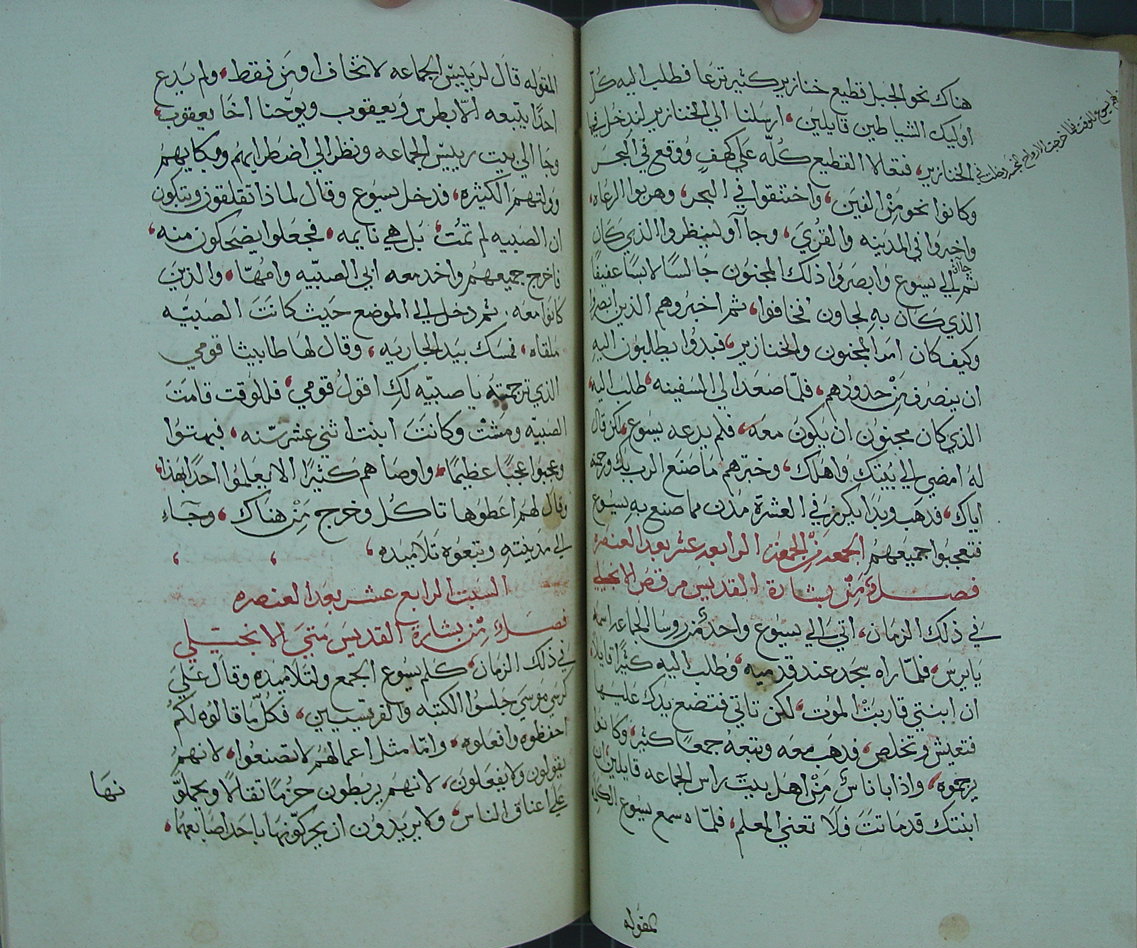 هناك نحو الجبل قطيع خنازير كثير ترعا فطلب اليه كل
اوليك الشياطين قايلين، ارسلنا الي الخنازير لندخل فيها
الخنازير، فتعالا القطيع كله علي كهف ووقع في البحر
وكانوا نحو من الفين، واختنقوا في البحر، وهربوا الرعاه،
واخبروا في المدينه والقري، وجاآوا لينظروا الذي كان
ثم جاآوا الي يسوع وابصروا ذلك المجنون جالسًا لابسًا عفيفًا
الذي كان به لجاون فخافوا، ثم اخبروهم الذين ابصروا
وكيف كان امر المجنون والخنازير، فبدوا يطلبون اليه
ان ينصرف من حدودهم، فلما صعد الي السفينه، طلب اليه
الذي كان مجنون ان يكون معه، فلم يدعه يسوع لكن قال
له امضي الي بيتك واهلك، وخبرهم ما صنع الرب بك ورحمته
اياك، فدهب وبدا يكرز في العشرة مدن مما صنع به يسوع
فتعجبوا جميعهم الجمعه من الجمعة الرابعه عشر بعد العنصره
فصل من بشارة القديس مرقص الانجيلي
في ذلك الزمان، اتي الي يسوع واحد من روسا الجماعه اسمه
يايرس، فلما راه سجد عند قدميه، وطلب اليه كثيرًا قايلاً،
ان ابنتي قاربت الموت، لكن تاتي فتضع يدك عليها
فتعيش وتخلص، فدهب معه وتبعه جمعًا كثير، وكانوا
يزحموه، واذا باناس من اهل بيت راس الجماعه قايلين، ان
ابنتك قد ماتت فلا تعني المعلم، فلما سمع يسوع الكلمه
المقوله
المقوله قال لرييس الجماعه لا تخاف اومن فقط، ولم يدع
احدًا يتبعه الا بطرس ويعقوب ويوحنا اخا يعقوب،
وجا الي بيت رييس الجماعه ونظر الي اضطرابهم وبكايهم
وولولتهم الكثيره، فدخل يسوع وقال لماذا تقلقون وتبكون
ان الصبيه لم تمت، بل هي نايمه، فجعلوا يضحكون منه،
فاخرج جميعهم واخد معه ابي الصبيه وامها، والذين
كانوا معه، ثم دخل الي الموضع حيث كانت الصبيه
ملقاه، فمسك بيد الجاريه، وقال لها طابيثا قومي
الذي ترجمته يا صبيه لك اقول قومي، فللوقت قامت
الصبيه ومشت وكانت ابنت اثني عشر سنه، فبهتوا
وعجبوا عجبًا عظيمًا، واوصاهم كثيرًا الا يعلموا احدًا بهذا،
وقال لهم اعطوها تاكل وخرج من هناك، وجاء
الي مدينته وتبعوه تلاميده،
السبت الرابع عشر بعد العنصره
فصل من بشارة القديس متي الانجيلي
في ذلك الزمان، كلم يسوع الجمع ولتلاميده وقال علي
كرسي موسي جلسوا الكتبه والفريسيين، فكل ما قالوه لكم
احفظوه وافعلوه، واما مثل اعمالهم لا تصنعوا، لانهم
يقولون ولا يفعلون، لانهم يربطون حزمًا ثقالًا ويحملو
علي اعناق الناس، ولا يريدون ان يحركونها باحد اصابعهم،
نها